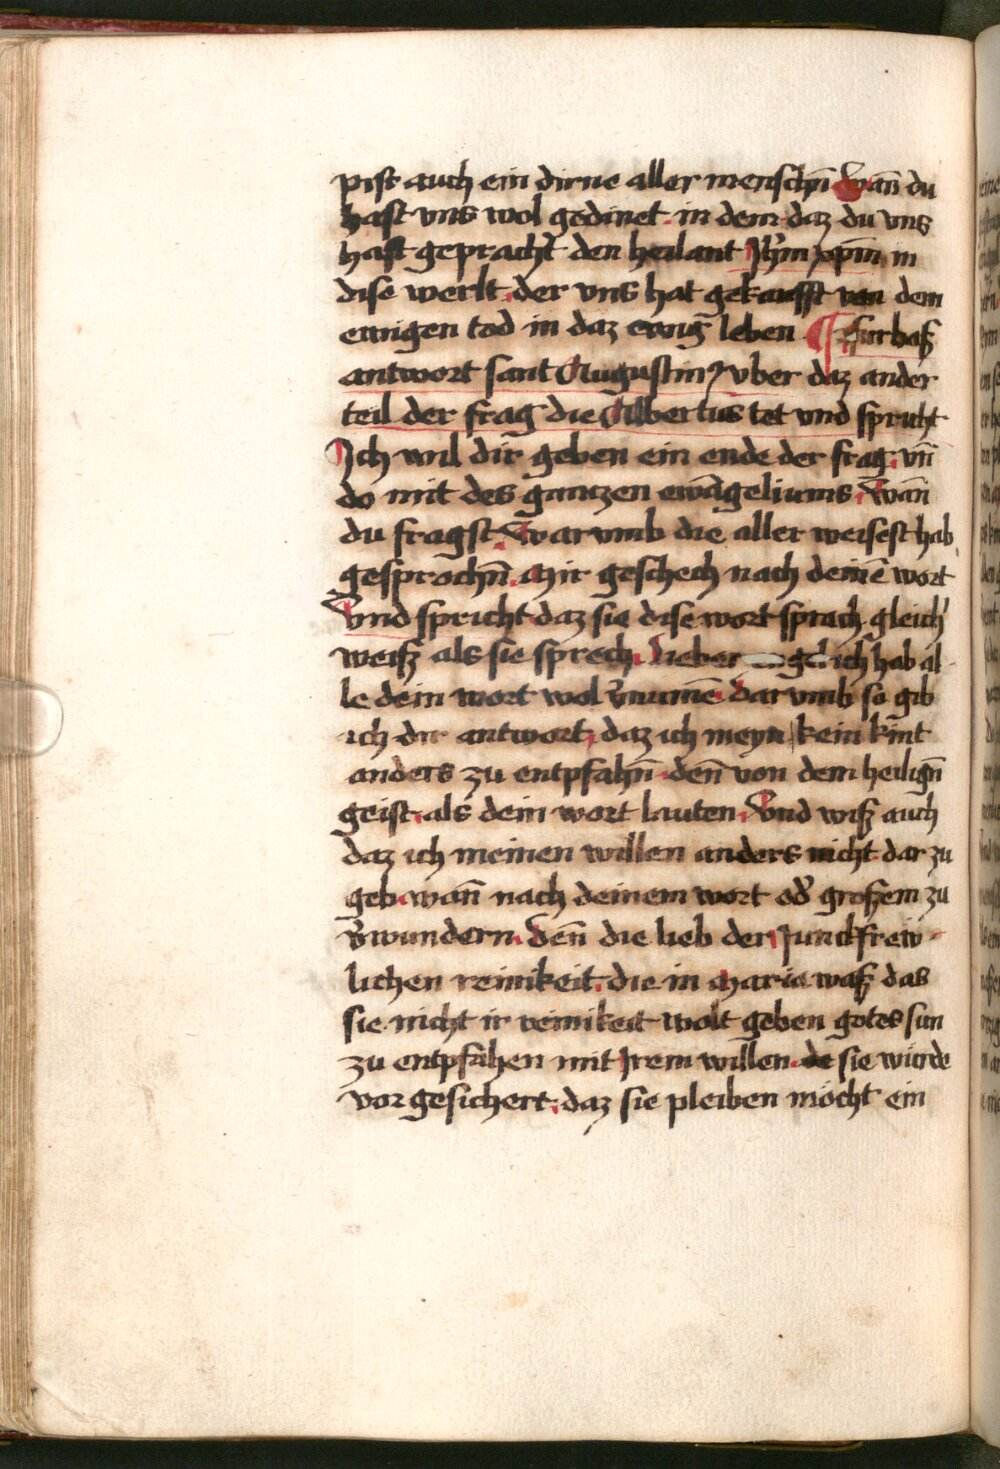 pist auch ein dirne aller menschn̄ Wan̄ du
hast vns wol gedinet. in dem daz du vns
hast gepracht den heilant Jhm̄ xpm̄ in
dise werlt. der vns hat gekaufft von dem
ewigen tod in daz ewiḡ leben ¶ Furbaß
antwort sant Augustin vber daz ander
teil der frag die Albertus tet vnd spricht
Ich wil dir geben ein ende der frag. vn̄
do mit des gantzen ewāgeliums. Wan̄
du fragst. Warvmb die aller weisest hab
gesprochn̄. Mir geschech nach deinē wort
Vnd spricht daz sie dise wort sprach gleich
weiß als sie sprech. Lieber engel ich hab al
le dein wort wol v̉numē. Darvmb so gib
ich dir antwort. daz ich meyn kein kint
anders zu entpfahn̄ den̄ von dem heilign̄
geist. als dein wort lauten. Vnd wiß auch
daz ich meinen willen anders nicht dar zu
geb. wan̄ nach deinem wort od̉ großem zu
v̉wundern. Den̄ die lieb der Junckfrew
lichen reinikeit. die in Maria waß das
sie nicht ir reinikeit wolt geben gotes sun
zu entpfahen mit Irem willen. sie würde
vor gesichert. daz sie pleiben möcht ein